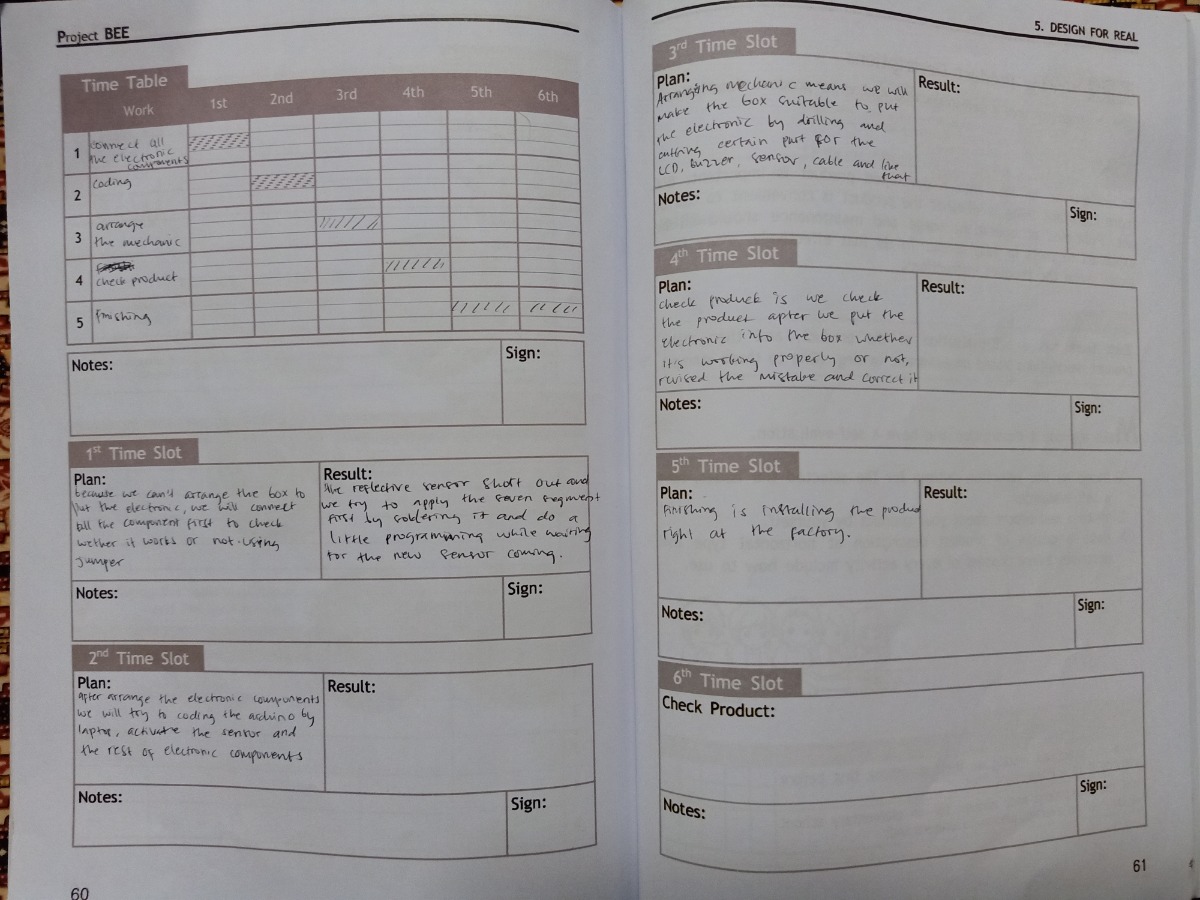 Project BEE
Time Table
Work 1st 2nd 3rd 4th 5th 6th
1 connect all
the electronic
components
2 coding
3 arrange
the mechanic
4 check product
5 finishing
Notes: Sign:
1st Time Slot
Plan:
because we can't arrange the box to
put the electronic, we will connect
all the component first to check
wether it works or not using
jumper
Result:
the reflective sensor short out and
we try to apply the seven segment
first by soldering it and do a
little programming while waiting
for the new sensor coming.
Notes: Sign:
2nd Time Slot
Plan:
After arrange the electronic components
we will try to coding the arduino by
laptop, activate the sensor and
the rest of electronic components
Result:
Notes: Sign:
60
5. DESIGN FOR REAL
3rd Time Slot
Plan:
Arranging mechanic means we will
make the box suitable to put
the electronic by drilling and
cutting certain part for the
LCD, buzzer, sensor, cable and like
that
Result:
Notes: Sign:
4th Time Slot
Plan:
check product is we check
the product apter we put the
electronic into the box whether
it's working properly or not,
revised the mistake and correct it
Result:
Notes: Sign:
5th Time Slot
Plan:
Finishing is installing the product
right at the factory.
Result:
Notes: Sign:
6th Time Slot
Check Product:
Notes: Sign:
61